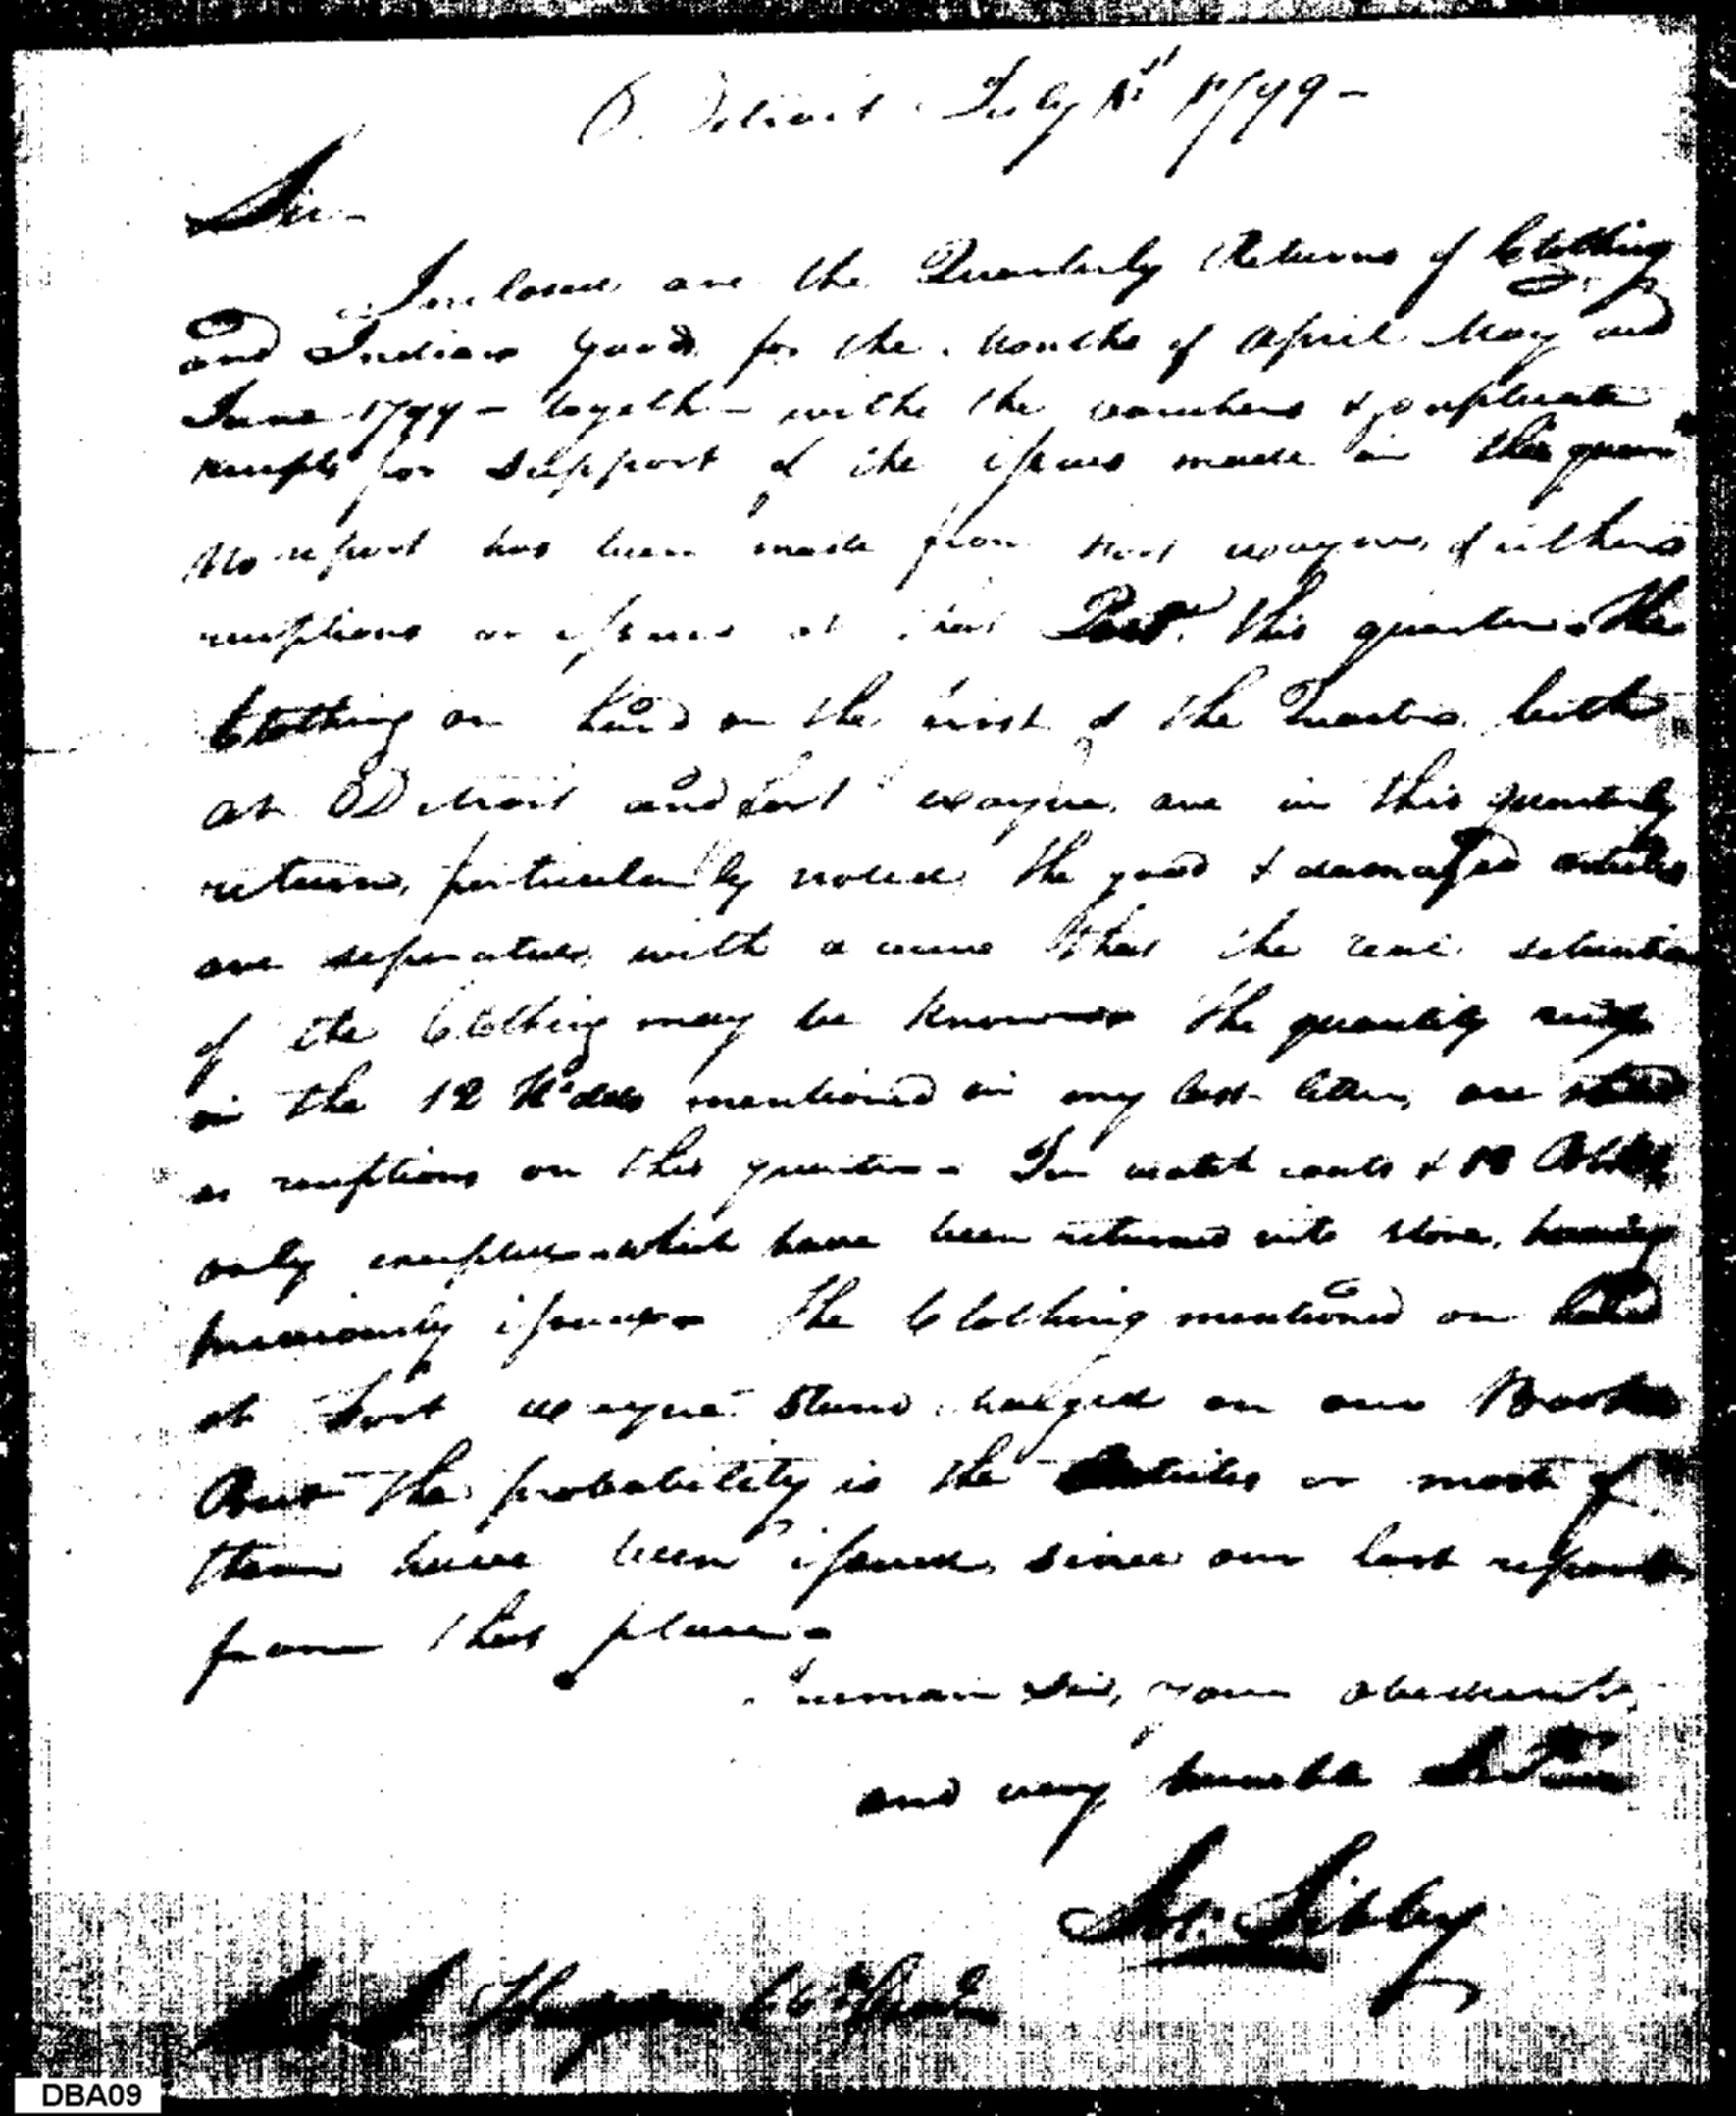 Detroit July 1st 1799 -
Sir -
Inclosed are the Quarterly Returns of Clothing
and Indian goods for the months of April May and
June 1799 - together with the vouchers & duplicate
receipts for support of the issues made in this quar
No report has been made from Fort Wayne, of either
receptions or issues at that Post this quarter. The
Clothing on hand on the first of the Quarter both
at Detroit and Fort Wayne, are in this quarterly
return, particularly noted, the good & damaged articles
are seperated, with a view that the real situation
of the Clothing may be known - The quantity
in the 12 Hhds mentioned in my last letter, are stated
as receptions on this quarter - Ten watch coats & 18
only excepted which have been returned into store, having
previously issued - The Clothing mentioned on hand
at Fort Wayne Stand charged on our Books
But the probability is the Articles or most of
them have been issued, since our last report
from that place -
I remain Sir, your obedient
and very humble
Sol. Sibley
DBA09